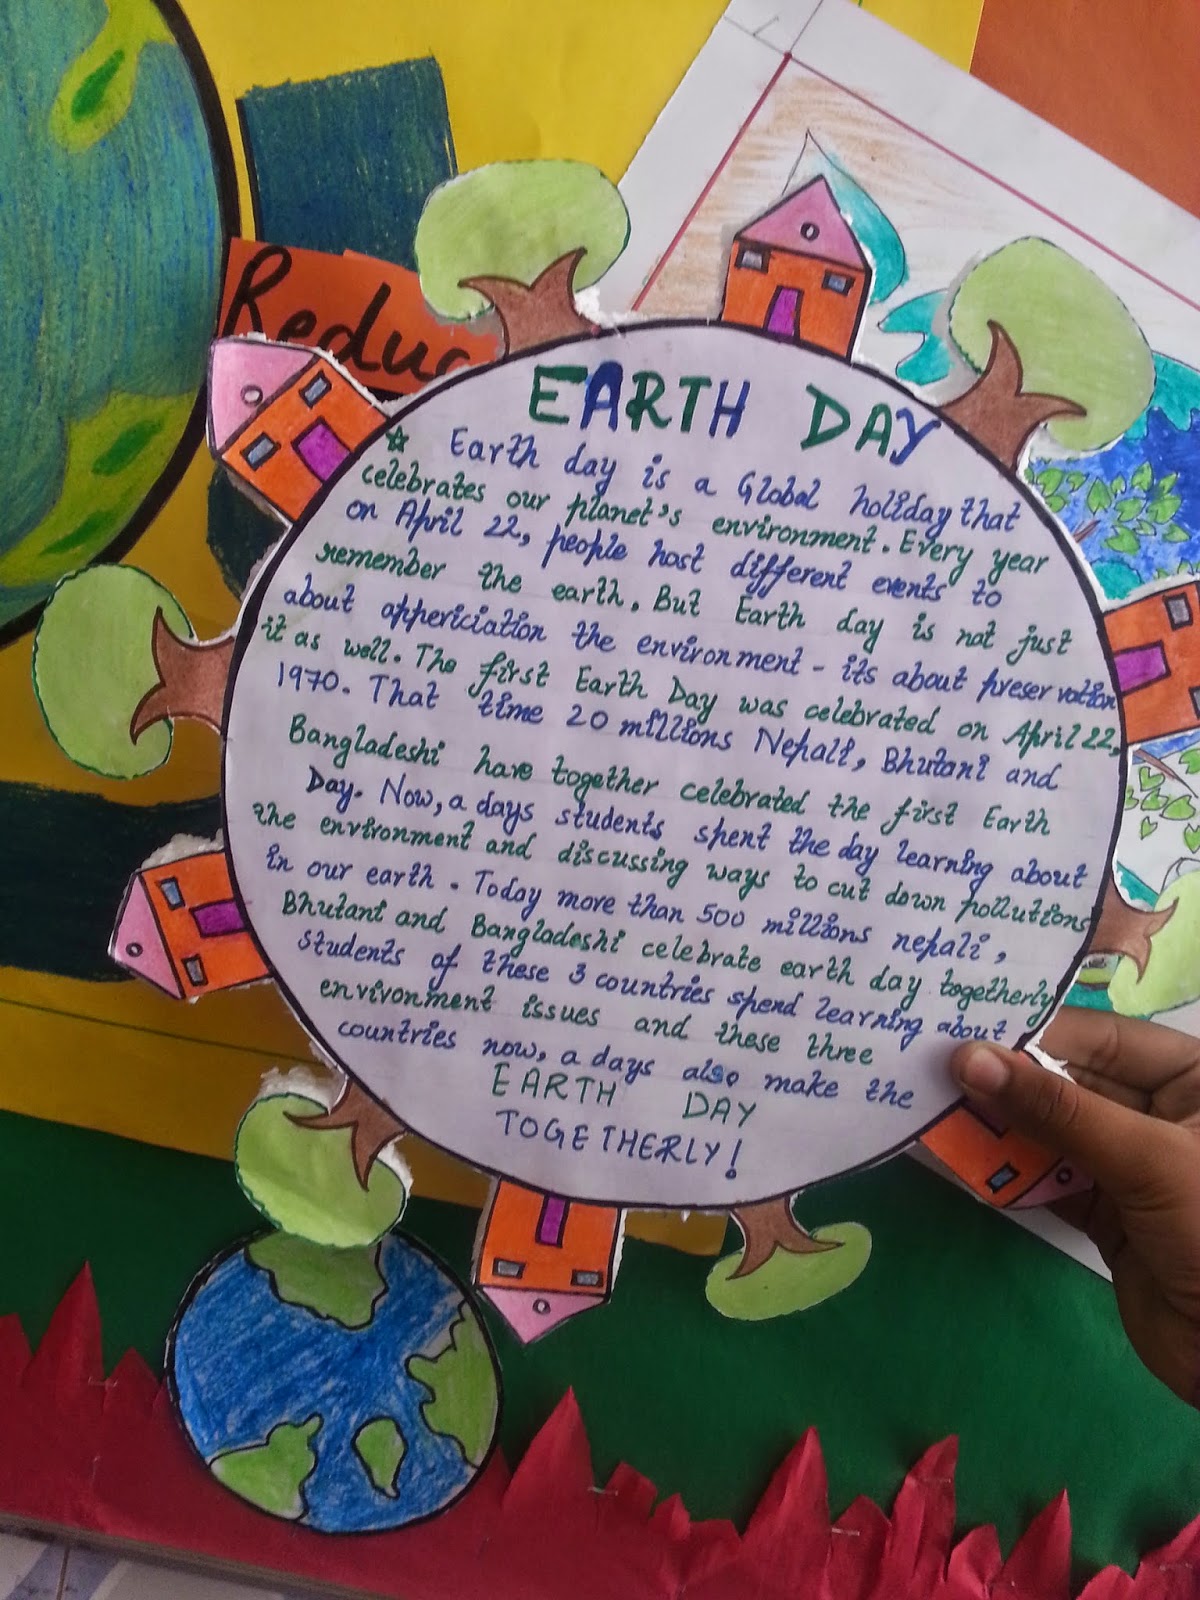 Reduc
EARTH DAY
☆ Earth day is a Global holiday that
celebrates our planet's environment. Every year
on April 22, people host different events to
remember the earth. But Earth day is not just
about appericiation the environment - its about preservation
it as well. The first Earth Day was celebrated on April 22,
1970. That time 20 millions Nepali, Bhutani and
Bangladeshi have together celebrated the first Earth
Day. Now, a days students spent the day learning about
the environment and discussing ways to cut down pollutions
in our earth. Today more than 500 millions nepali,
Bhutani and Bangladeshi celebrate earth day togetherly
students of these 3 countries spend learning about
environment issues and these three
countries now, a days also make the
EARTH DAY
TOGETHERLY!